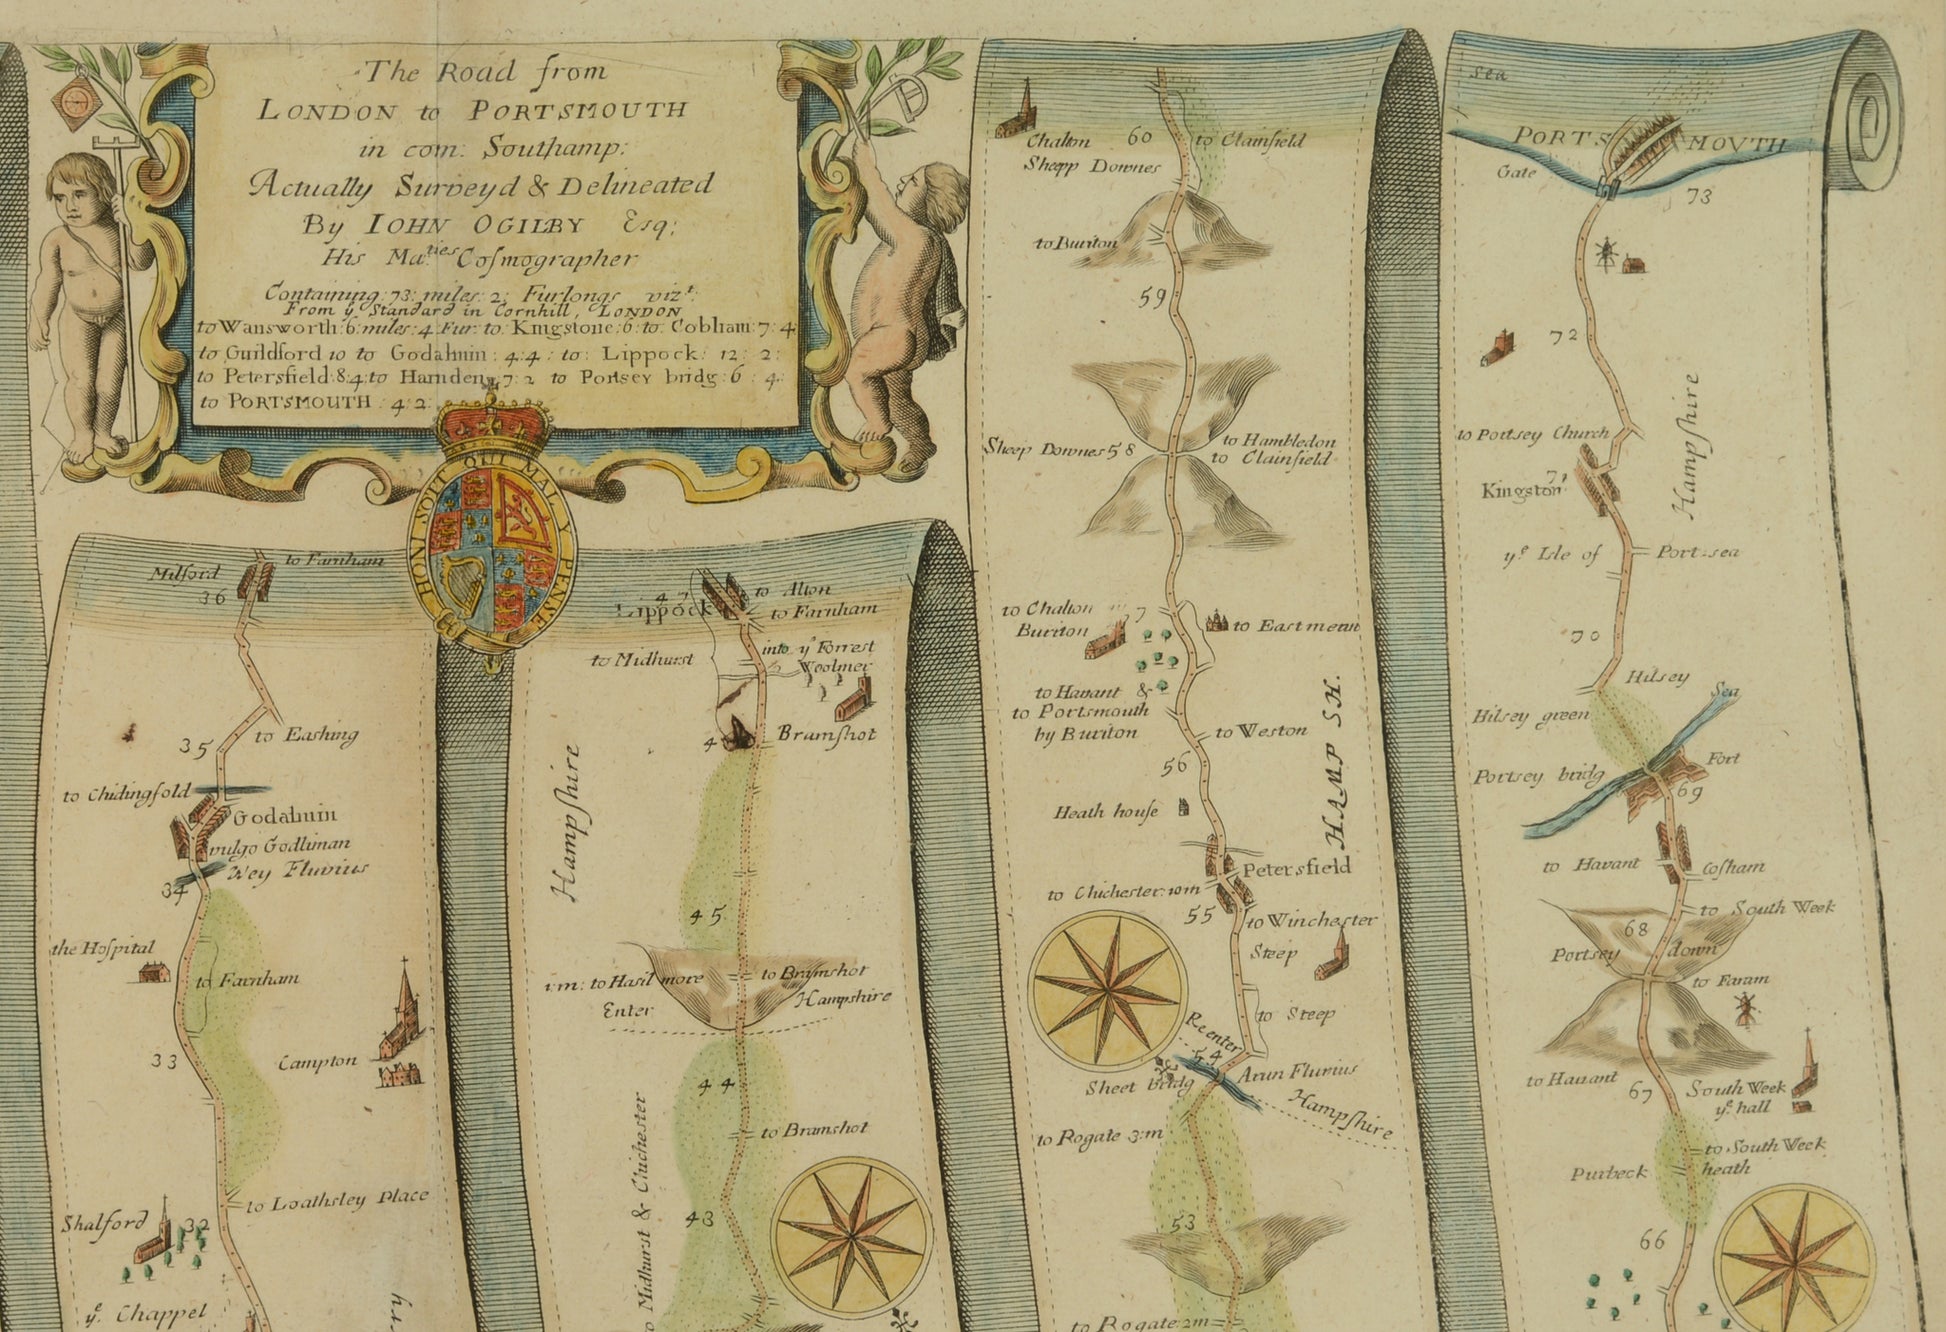 The Road from
LONDON to PORTSMOUTH
in com: Southamp:
Actually Surveyd & Delineated
By IOHN OGILBY Esq;
His Ma.ties Cosmographer
Containing 73 miles: 2; Furlongs vizt:
From ye Standard in Cornhill, LONDON
to Wansworth: 6 miles: 4 Fur: to Kingstone: 6 to Cobham: 7: 4
to Guildford 10 to Godalmin: 4:4: to: Lippock: 12: 2:
to Petersfield: 8:4: to Harnden 7: 2 to Portsey bridg: 6: 4:
to PORTSMOUTH: 4: 2
HONI SOUT QUI MAL Y PENSE
to Farnham
Milford
36
to Eashing
35
to Chidingfold
Godalmin
vulgo Godliman
Wey Fluvius
34
the Hospital
to Farnham
33
Campton
to Loathsley Place
Shalford
32
ye Chappel
47
Lippock
to Alton
to Farnham
into ye Forrest
Woolmer
to Midhurst
4
Bramshot
Hampshire
45
1m: to Hasilmore
to Bramshot
Enter
Hampshire
44
to Bramshot
to Midhurst & Chichester
43
Chalton
60
to Clainfield
Sheap Downes
to Buriton
59
Sheep Downes 58
to Hambledon
to Clainfield
to Chalton
7
Buriton
to Eastmean
to Havant &
to Portsmouth
by Buriton
to Weston
56
HAMP SH.
Heath house
Petersfield
to Chichester: 10m
55
to Winchester
Steep
to Steep
Reenter
54
Sheet bridg
Arun Fluvius
Hampshire
to Rogate 3:m
53
to Rogate 2m
Sea
PORTSMOVTH
Gate
73
72
Hampshire
to Portsey Church
71
Kingston
ye Isle of Port:sea
70
Hilsey
Sea
Hilsey green
Portsey bridg
Fort
69
to Havant
Cosham
to South Week
68
Portsey down
to Faram
to Havant
67
South Week
ye hall
to South Week
heath
Purbeck
66